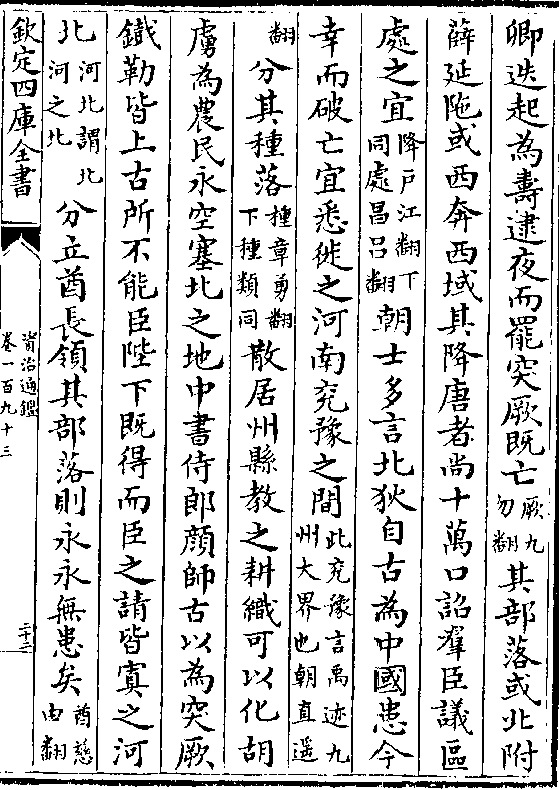 卿迭起為夀逮夜而罷突厥既亡厥九勿翻其部落或北附
薛延陁或西奔西域其降唐者尚十萬口詔羣臣議區
處之宜降戸江翻下同處昌吕翻朝士多言北狄自古為中國患今
幸而破亡宜悉徙之河南兖豫之間此兖豫言禹迹九州大界也朝直遥
翻分其種落種章勇翻下種類同散居州縣教之耕織可以化胡
虜為農民永空塞北之地中書侍郎顔師古以為突厥
鐵勒皆上古所不能臣陛下既得而臣之請皆寘之河
北河北謂北河之北分立酋長領其部落則永永無患矣酋慈由翻
欽定四庫全書
資治通鑑
卷一百九十三
二十二